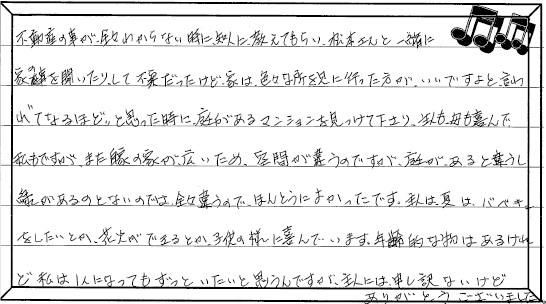 不動産の事が、全々わからない時に知人に教えてもらい、松本さんと一緒に
家の線を聞いたり、して不安だったけど、家は、色々な所を見に行った方が、いいですよと、言わ
れてなるほど。と思った時に、庭があるマンションを見つけて下さり、主人も、母も喜んで、
私もですが、また嫁の家が、広いため、空間が違うのですが、庭が、あると違うし
緑があるのとないのでは、全々違うので、ほんとうによかったです。主人は、夏は、バーベキュー
をしたいとか、花火ができるとか、子供の様に喜んでいます。年齢的な物はあるけれ
ど私は1人になってもずっといたいと思うんですが、主人には、申し訳ないけど
ありがとうございました